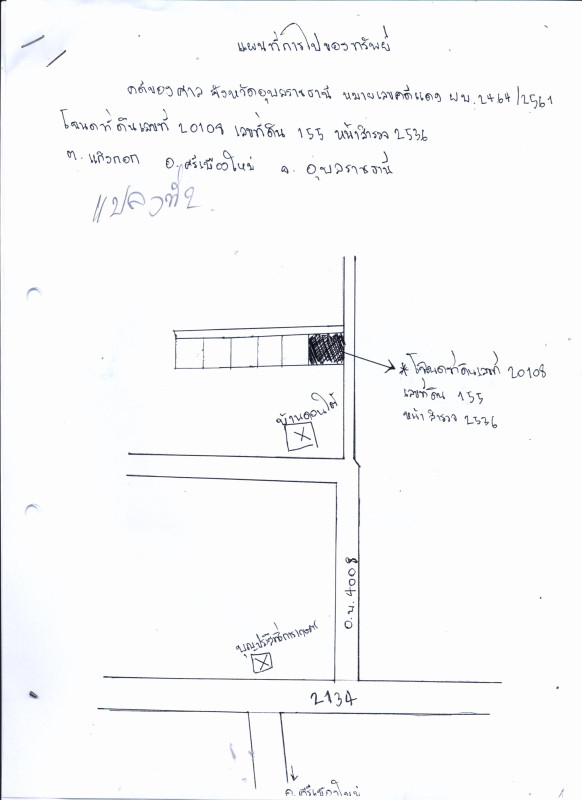 แผนที่การไปของทรัพย์
คดีของศาล จังหวัดอุบลราชธานี หมายเลขคดีแดง ผบ.2464/2561
โฉนดที่ดินเลขที่ 20108 เลขที่ดิน 155 หน้าสำรวจ 2536
ต. แก้งกอก อ. ศรีเมืองใหม่ จ. อุบลราชธานี
แปลงที่2
*โฉนดที่ดินเลขที่ 20108
เลขที่ดิน 155
หน้าสำรวจ 2536
บ้านดอนใต้
อ.บ. 4008
2134
อ.ศรีเมืองใหม่